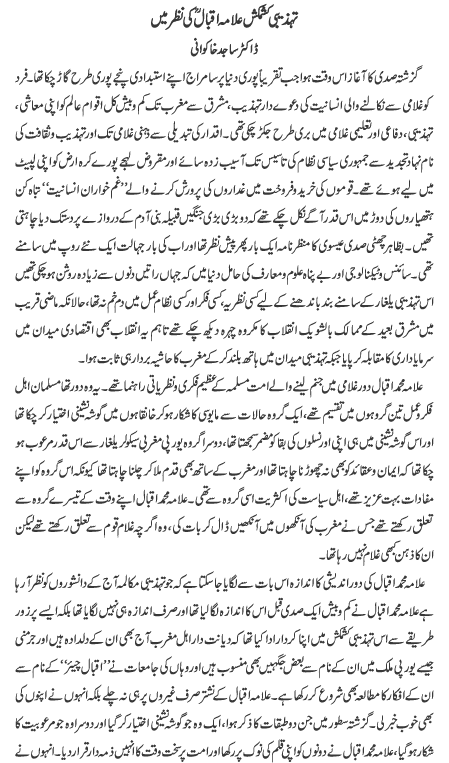 تہذیبی کشمکش علامہ اقبالؒ کی نظر میں
ڈاکٹر ساجد خاکوانی
گزشتہ صدی کا آغاز اس وقت ہوا جب تقریباً پوری دنیا پر سامراج اپنے استبدادی پنجے پوری طرح گاڑ چکا تھا۔ فرد
کو غلامی سے نکالنے والی انسانیت کی دعوے دار تہذیب، مشرق سے مغرب تک کم و بیش کل اقوام عالم کو اپنی معاشی،
تہذیبی، دفاعی اور تعلیمی غلامی میں بری طرح جکڑ چکی تھی۔ اقدار کی تبدیلی سے ذہنی غلامی تک اور تہذیب و ثقافت کی
نام نہاد تجدید سے جمہوری سیاسی نظام کی تاسیس تک آسیب زدہ سائے اور مقروض لہجے پورے کرہ ارض کو اپنی لپیٹ
میں لیے ہوئے تھے۔ قوموں کی خرید و فروخت میں غداروں کی پرورش کرنے والے ’’غم خواران انسانیت‘‘ تباہ کن
ہتھیاروں کی دوڑ میں اس قدر آگے نکل چکے تھے کہ دو بڑی بڑی جنگیں قبیلہ بنی آدم کے دروازے پر دستک دیا چاہتی
تھیں۔ بظاہر چھٹی صدی عیسوی کا منظرنامہ ایک بار پھر پیش نظر تھا اور اب کی بار جہالت ایک نئے روپ میں سامنے
تھی۔ سائنس و ٹیکنالوجی اور بے پناہ علوم و معارف کی حامل دنیا میں کہ جہاں راتیں دنوں سے زیادہ روشن ہو چکی تھیں
اس تہذیبی یلغار کے سامنے بند باندھنے کے لیے کسی نظریہ، کسی فکر اور کسی نظام عمل میں دم خم نہ تھا، حالانکہ ماضی قریب
میں مشرق بعید کے ممالک بالشویک انقلاب کا مکروہ چہرہ دیکھ چکے تھے تاہم یہ انقلاب بھی اقتصادی میدان میں
سرمایہ داری کا مقابلہ کر پایا جبکہ تہذیبی میدان میں ہاتھ بلند کر کے مغرب کا حاشیہ بردار ہی ثابت ہوا۔
علامہ محمد اقبال دور غلامی میں جنم لینے والے امت مسلمہ کے عظیم فکری و نظریاتی راہنما تھے۔ یہ وہ دور تھا مسلمان اہل
فکر و عمل تین گروہوں میں تقسیم تھے، ایک گروہ حالات سے مایوسی کا شکار ہو کر خانقاہوں میں گوشہ نشینی اختیار کر چکا تھا
اور اس گوشہ نشینی میں ہی اپنی اور نسلوں کی بقا کو مضمر سمجھتا تھا، دوسرا گروہ یورپی مغربی سیکولر یلغار سے اس قدر مرعوب ہو
چکا تھا کہ ایمان و عقائد کو بھی نہ چھوڑنا چاہتا تھا اور مغرب کے ساتھ بھی قدم ملا کر چلنا چاہتا تھا کیونکہ اس گروہ کو اپنے
مفادات بہت عزیز تھے، اہل سیاست کی اکثریت اسی گروہ سے تھی۔ علامہ محمد اقبال اپنے وقت کے تیسرے گروہ سے
تعلق رکھتے تھے جس نے مغرب کی آنکھوں میں آنکھیں ڈال کر بات کی، وہ اگرچہ غلام قوم سے تعلق رکھتے تھے لیکن
ان کا ذہن کبھی غلام نہیں رہا تھا۔
علامہ محمد اقبال کی دور اندیشی کا اندازہ اس بات سے لگایا جا سکتا ہے کہ جو تہذیبی مکالمہ آج کے دانشوروں کو نظر آ رہا
ہے علامہ محمد اقبال نے کم و بیش ایک صدی قبل اس کا اندازہ لگا لیا تھا اور صرف اندازہ ہی نہیں لگایا تھا بلکہ ایسے پرزور
طریقے سے اس تہذیبی کشمکش میں اپنا کردار ادا کیا تھا کہ دیانت دار اہل مغرب آج بھی ان کے دلدادہ ہیں اور جرمنی
جیسے یورپی ملک میں ان کے نام سے بعض جگہیں بھی منسوب ہیں اور وہاں کی جامعات نے ’’اقبال چیئر‘‘ کے نام سے
ان کے افکار کا مطالعہ بھی شروع کر رکھا ہے۔ علامہ محمد اقبال کے نشتر صرف غیروں پر ہی نہ چلے بلکہ انہوں نے اپنوں کی
بھی خوب خبر لی۔ گزشتہ سطور میں جن دو طبقات کا ذکر ہوا، ایک وہ جو گوشہ نشینی اختیار کر گیا اور دوسرا وہ جو مرعوبیت کا
شکار ہو گیا، علامہ محمد اقبال نے دونوں کو اپنی قلم کی نوک پر رکھا اور امت پر سخت وقت کا انہیں ذمہ دار قرار دیا۔ انہوں نے